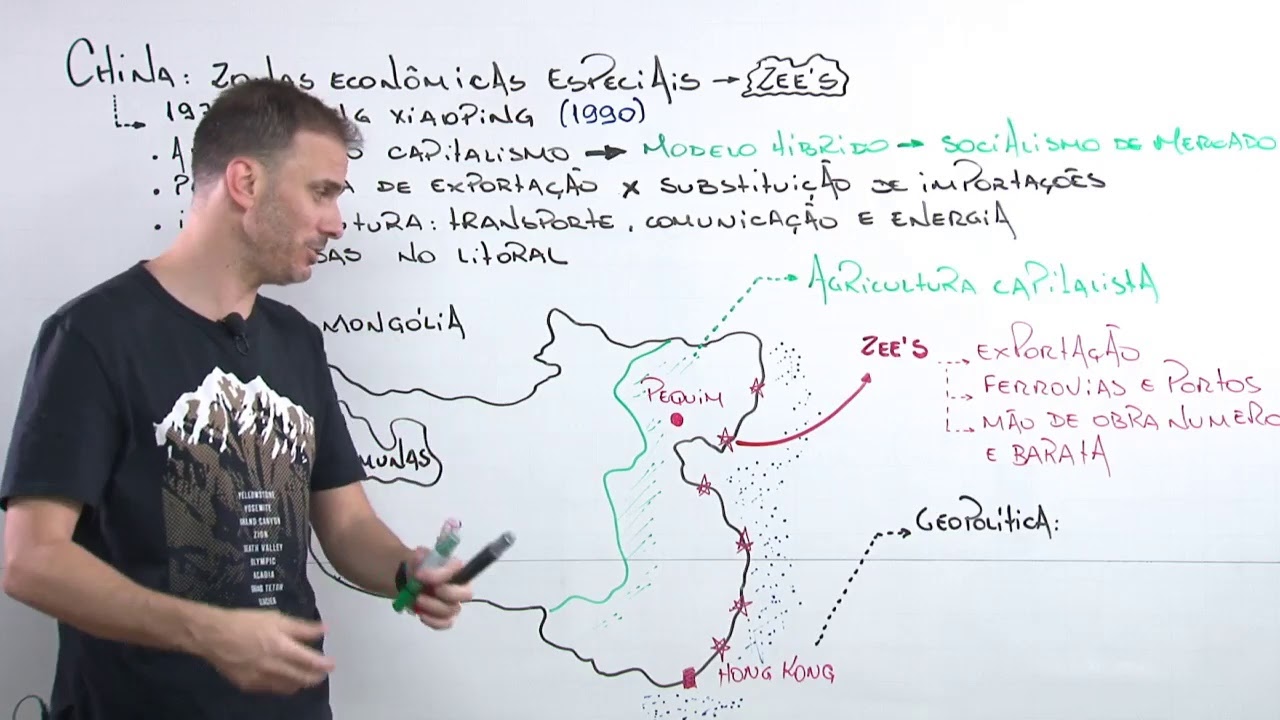 CHINA: ZONAS ECONÔMICAS ESPECIAIS → ZEE'S
XIAOPING (1990)
CAPITALISMO → MODELO HÍBRIDO → SOCIALISMO DE MERCADO
DE EXPORTAÇÃO X SUBSTITUIÇÃO DE IMPORTAÇÕES
TRANSPORTE, COMUNICAÇÃO E ENERGIA
NO LITORAL
AGRICULTURA CAPITALISTA
MONGÓLIA
ZEE'S
EXPORTAÇÃO
FERROVIAS E PORTOS
MÃO DE OBRA NUMERO
E BARATA
PEQUIM
GEOPOLÍTICA:
HONG KONG
YELLOWSTONE
YOSEMITE
GRAND CANYON
ZION
DEATH VALLEY
OLYMPIC
ACADIA
GRAND TETON
GLACIER